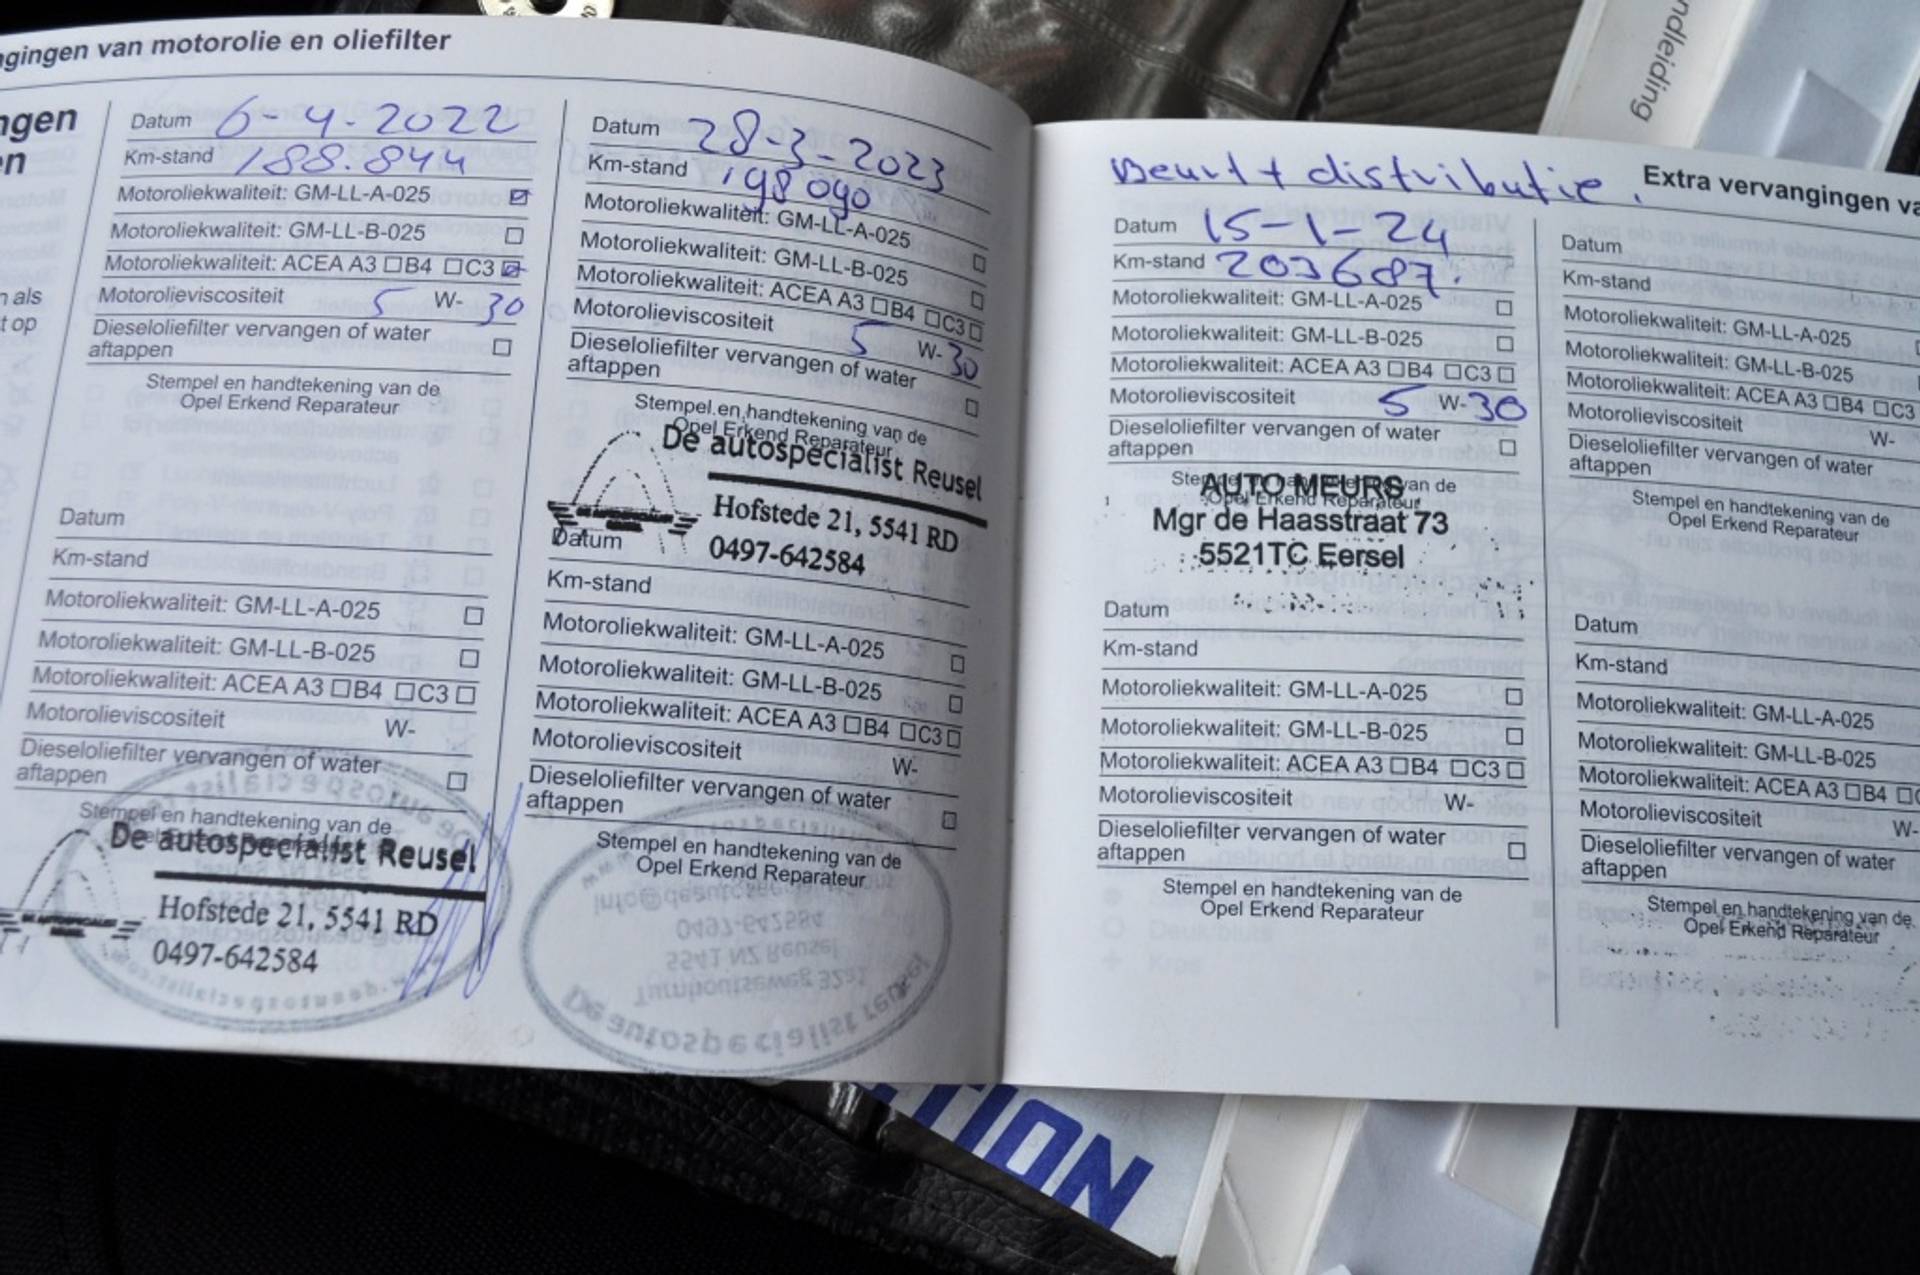 gingen van motorolie en oliefilter
ngen
en
n als
t op
Datum 6-4-2022
Km-stand 188.844
Motoroliekwaliteit: GM-LL-A-025 ☑
Motoroliekwaliteit: GM-LL-B-025 ☐
Motoroliekwaliteit: ACEA A3 ☐B4 ☐C3 ☑
Motorolieviscositeit 5 W-30
Dieseloliefilter vervangen of water
aftappen ☐
Stempel en handtekening van de
Opel Erkend Reparateur
Datum
Km-stand
Motoroliekwaliteit: GM-LL-A-025 ☐
Motoroliekwaliteit: GM-LL-B-025 ☐
Motoroliekwaliteit: ACEA A3 ☐B4 ☐C3 ☐
Motorolieviscositeit W-
Dieseloliefilter vervangen of water
aftappen ☐
Stempel en handtekening van de
De autospecialist Reusel
Hofstede 21, 5541 RD
0497-642584
Datum 28-3-2023
Km-stand 198090
Motoroliekwaliteit: GM-LL-A-025 ☐
Motoroliekwaliteit: GM-LL-B-025 ☐
Motoroliekwaliteit: ACEA A3 ☐B4 ☐C3 ☐
Motorolieviscositeit 5 W-30
Dieseloliefilter vervangen of water
aftappen ☐
Stempel en handtekening van de
Opel Erkend Reparateur
De autospecialist Reusel
Hofstede 21, 5541 RD
0497-642584
Datum
Km-stand
Motoroliekwaliteit: GM-LL-A-025 ☐
Motoroliekwaliteit: GM-LL-B-025 ☐
Motoroliekwaliteit: ACEA A3 ☐B4 ☐C3 ☐
Motorolieviscositeit W-
Dieseloliefilter vervangen of water
aftappen ☐
Stempel en handtekening van de
Opel Erkend Reparateur
Beurt + distributie.
Extra vervangingen va
Datum 15-1-24
Km-stand 203687.
Motoroliekwaliteit: GM-LL-A-025 ☐
Motoroliekwaliteit: GM-LL-B-025 ☐
Motoroliekwaliteit: ACEA A3 ☐B4 ☐C3 ☐
Motorolieviscositeit 5 W-30
Dieseloliefilter vervangen of water
aftappen ☐
Opel Erkend Reparateur
AUTO MEURS
Mgr de Haasstraat 73
5521TC Eersel
Datum
Km-stand
Motoroliekwaliteit: GM-LL-A-025 ☐
Motoroliekwaliteit: GM-LL-B-025 ☐
Motoroliekwaliteit: ACEA A3 ☐B4 ☐C3 ☐
Motorolieviscositeit W-
Dieseloliefilter vervangen of water
aftappen ☐
Stempel en handtekening van de
Opel Erkend Reparateur
Datum
Km-stand
Motoroliekwaliteit: GM-LL-A-025
Motoroliekwaliteit: GM-LL-B-025
Motoroliekwaliteit: ACEA A3 ☐B4 ☐C3
Motorolieviscositeit W-
Dieseloliefilter vervangen of water
aftappen
Stempel en handtekening van de
Opel Erkend Reparateur
Datum
Km-stand
Motoroliekwaliteit: GM-LL-A-025
Motoroliekwaliteit: GM-LL-B-025
Motoroliekwaliteit: ACEA A3 ☐B4 ☐C
Motorolieviscositeit W-
Dieseloliefilter vervangen of water
aftappen
Stempel en handtekening van de
Opel Erkend Reparateur
ndleiding
TION